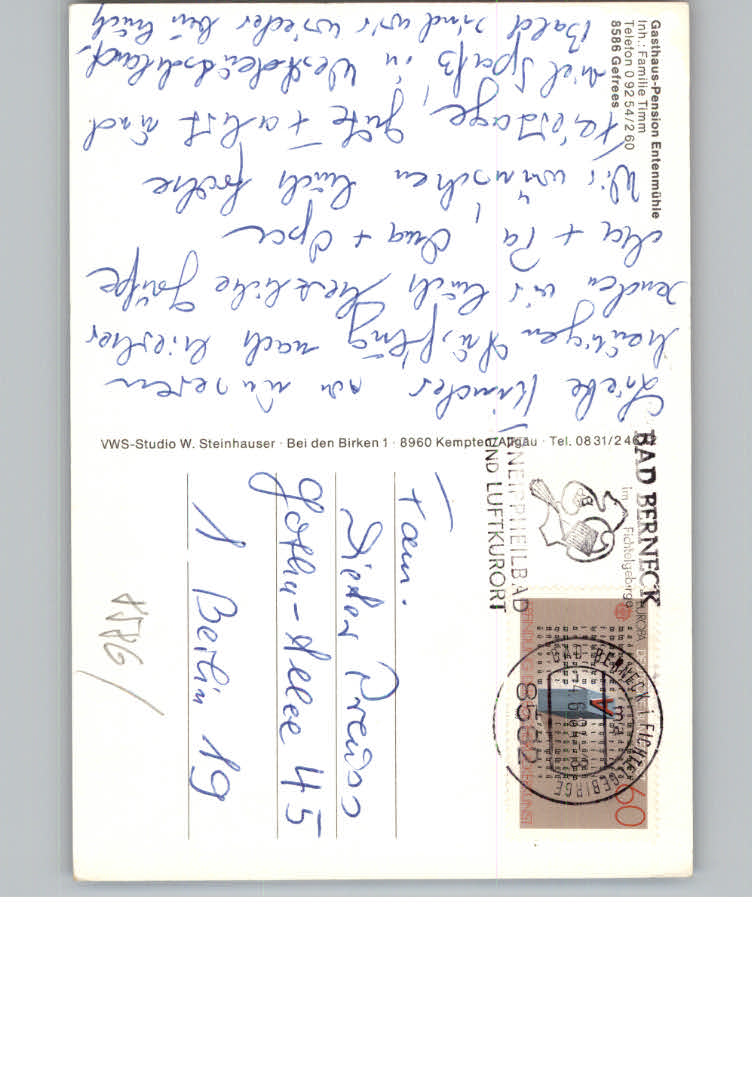 Gasthaus-Pension Entenmühle
Inh.: Familie Timm
Telefon 0 92 54/2 60
8586 Gefrees
Liebe Kinder von unserem
heutigen Ausflug nach hierher
senden wir Euch herzliche Grüße
Ma + Pa, Oma + Opa
Wir wünschen Euch frohe
Feiertage, gute Fahrt und
viel Spaß in Westdeutschland.
Bald sind wir wieder bei Euch
VWS-Studio W. Steinhauser · Bei den Birken 1 · 8960 Kempten/Allgäu · Tel. 08 31/2 46
BAD BERNECK
im Fichtelgebirge
KNEIPPHEILBAD
UND LUFTKURORT
BERNECK I. FICHTELGEBIRGE
8582
EUROPA
60
Fam.
Dieter Preuss
Gotha-Allee 45
1 Berlin 19